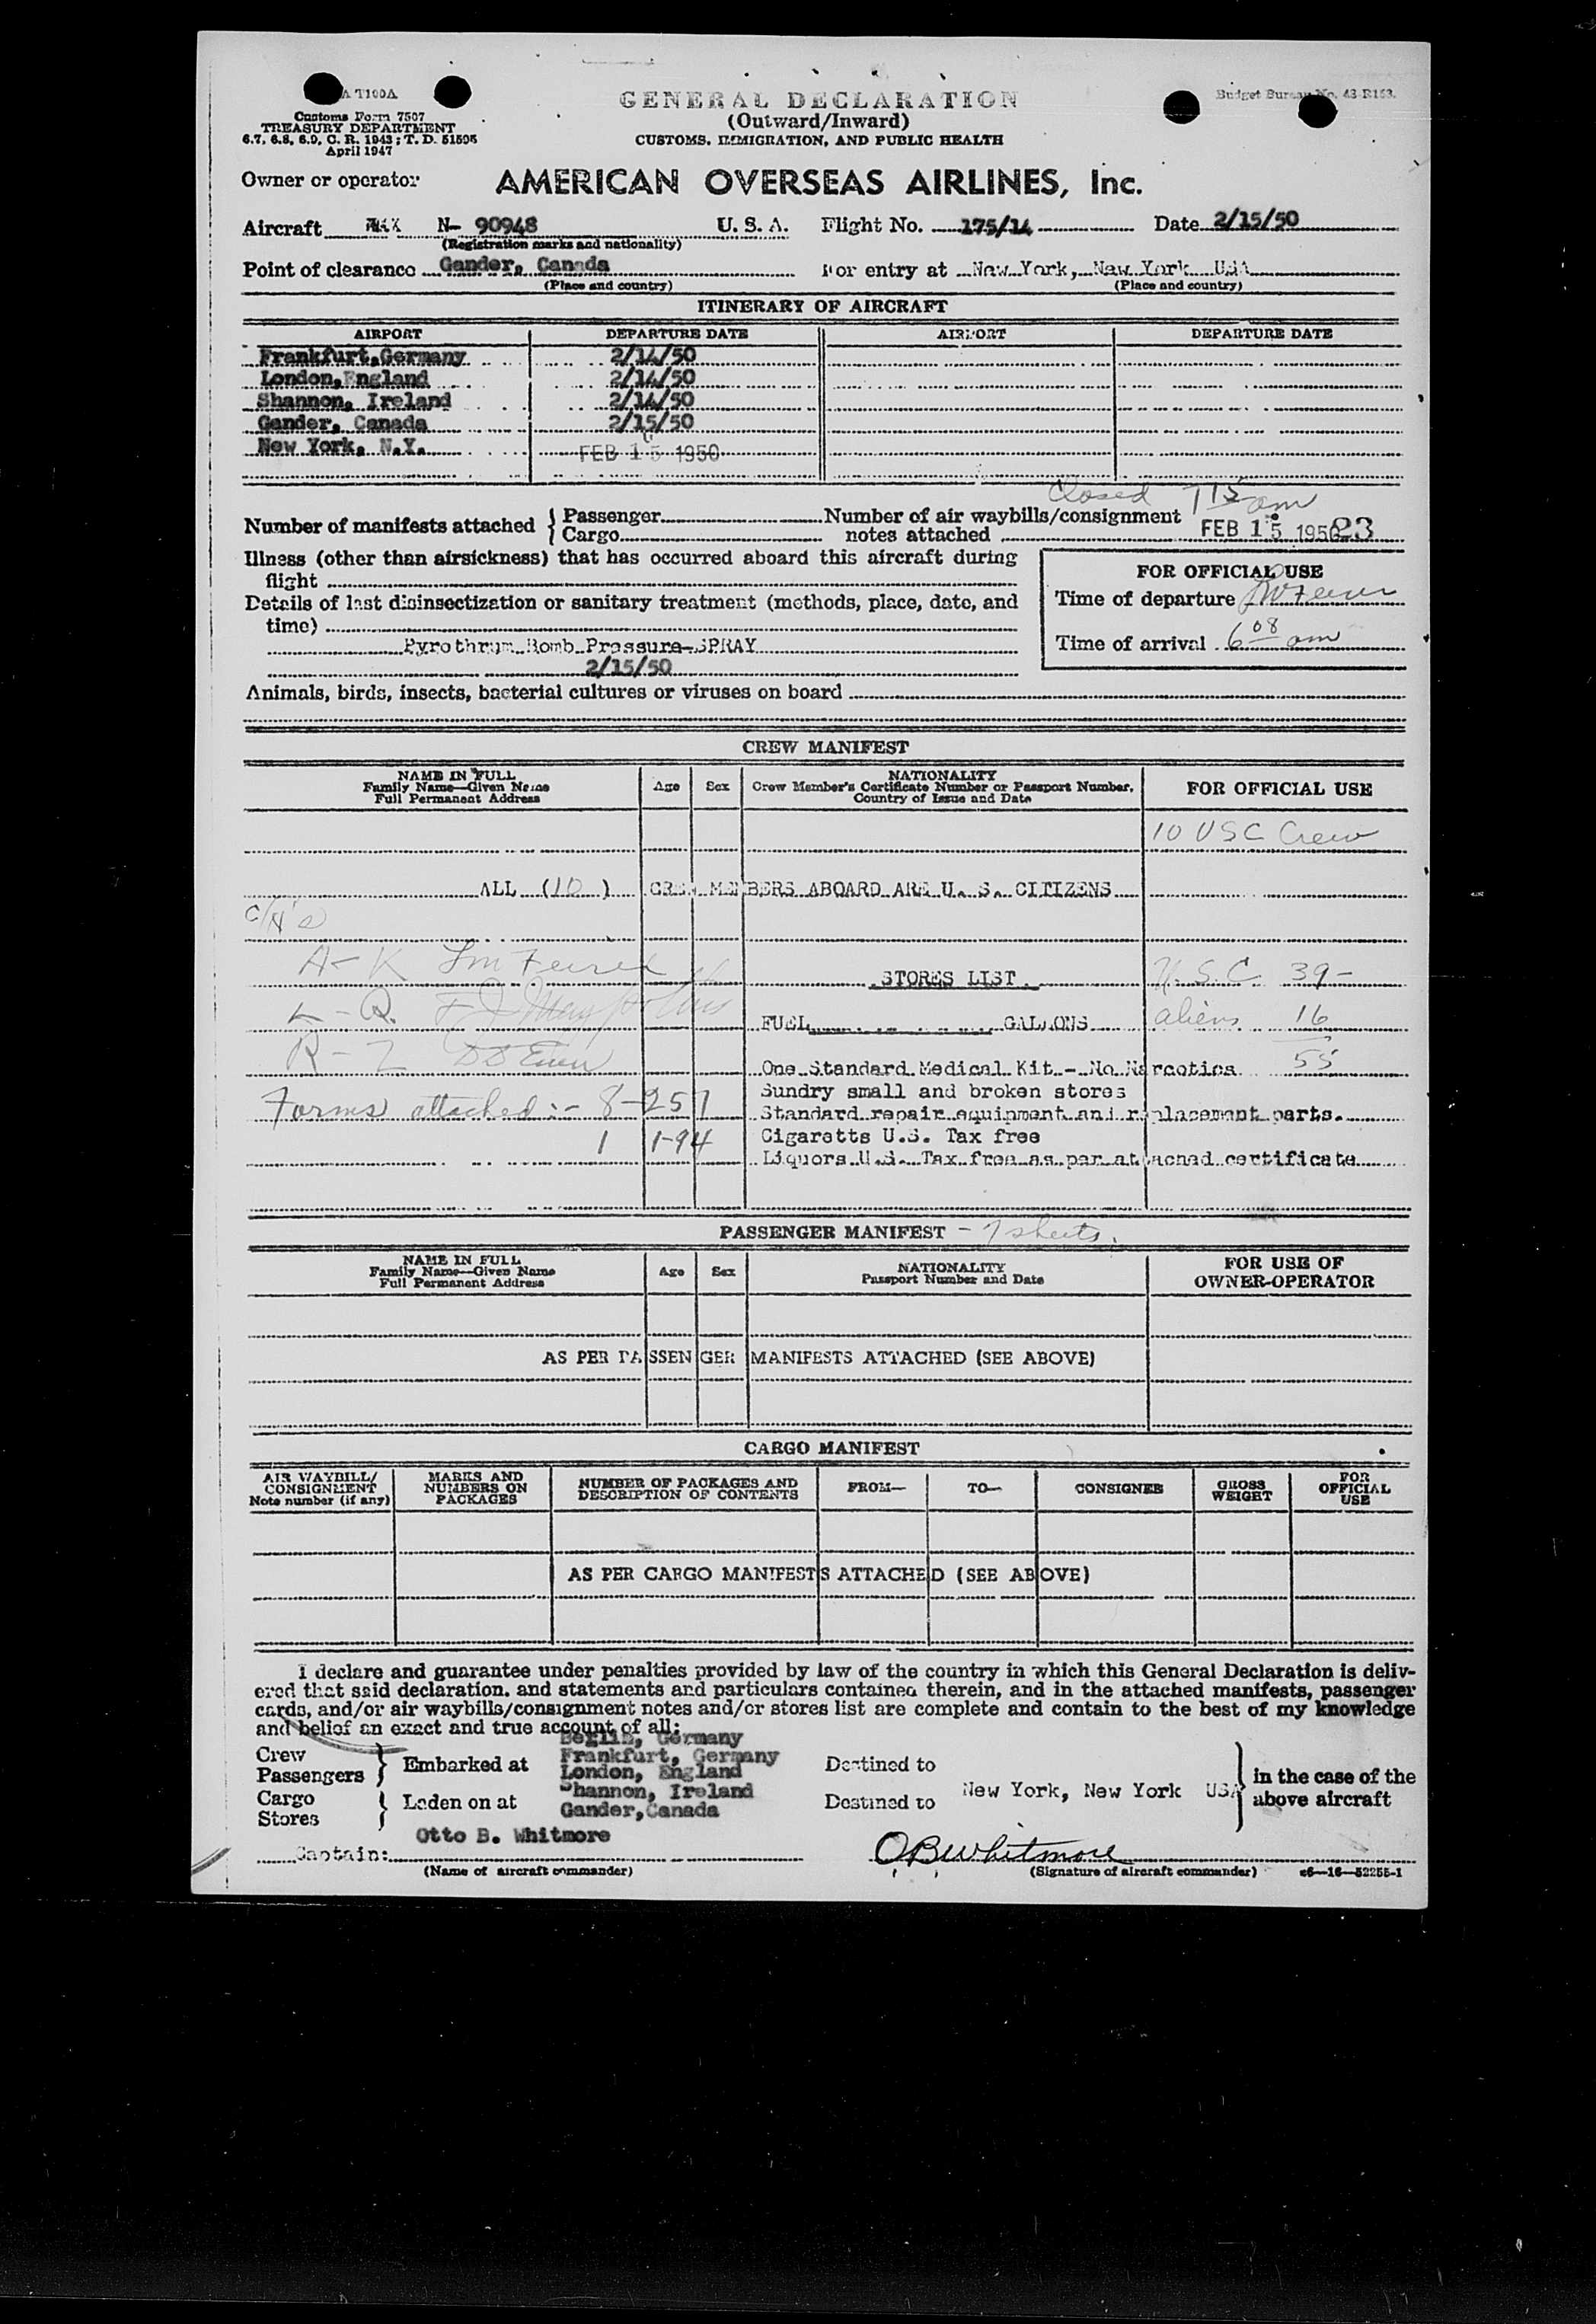 A T100A
Customs Form 7507
TREASURY DEPARTMENT
6.7, 6.8, 6.9, C. R. 1943; T. D. 51505
April 1947
GENERAL DECLARATION
(Outward/Inward)
CUSTOMS, IMMIGRATION, AND PUBLIC HEALTH
Budget Bureau No. 43 R153.
Owner or operator AMERICAN OVERSEAS AIRLINES, Inc.
Aircraft N- 90948 U. S. A. Flight No. 175/14 Date 2/15/50
(Registration marks and nationality)
Point of clearance Gander, Canada For entry at New York, New York USA
(Place and country) (Place and country)
ITINERARY OF AIRCRAFT
AIRPORT DEPARTURE DATE AIRPORT DEPARTURE DATE
Frankfurt,Germany 2/14/50
London,England 2/14/50
Shannon, Ireland 2/14/50
Gander, Canada 2/15/50
New York, N.Y. FEB 15 1950
Closed 715 am
Number of manifests attached { Passenger Number of air waybills/consignment
Cargo notes attached FEB 15 1950 23
Illness (other than airsickness) that has occurred aboard this aircraft during
flight
FOR OFFICIAL USE
Details of last disinsectization or sanitary treatment (methods, place, date, and
time)
Time of departure
Pyrothrum Bomb Pressure-SPRAY
Time of arrival 6 08 am
2/15/50
Animals, birds, insects, bacterial cultures or viruses on board
CREW MANIFEST
NAME IN FULL
Family Name—Given Name
Full Permanent Address
Age Sex
NATIONALITY
Crew Member's Certificate Number or Passport Number,
Country of Issue and Date
FOR OFFICIAL USE
10 USC Crew
ALL (10) CREW MEMBERS ABOARD ARE U. S. CITIZENS
A-K
STORES LIST. U.S.C. 39-
L-Q.
FUEL GALLONS aliens 16
R-Z
55
One Standard Medical Kit - No Narcotics
Sundry small and broken stores
Forms attached:- 8-257
Standard repair equipment and replacement parts.
1 1-94
Cigaretts U.S. Tax free
Liquors U.S. Tax free as per attached certificate
PASSENGER MANIFEST - 7 sheets.
NAME IN FULL
Family Name—Given Name
Full Permanent Address
Age Sex
NATIONALITY
Passport Number and Date
FOR USE OF
OWNER-OPERATOR
AS PER PASSENGER MANIFESTS ATTACHED (SEE ABOVE)
CARGO MANIFEST
AIR WAYBILL/
CONSIGNMENT
Note number (if any)
MARKS AND
NUMBERS ON
PACKAGES
NUMBER OF PACKAGES AND
DESCRIPTION OF CONTENTS
FROM— TO— CONSIGNEE
GROSS
WEIGHT
FOR
OFFICIAL
USE
AS PER CARGO MANIFESTS ATTACHED (SEE ABOVE)
I declare and guarantee under penalties provided by law of the country in which this General Declaration is deliv-
ered that said declaration, and statements and particulars contained therein, and in the attached manifests, passenger
cards, and/or air waybills/consignment notes and/or stores list are complete and contain to the best of my knowledge
and belief an exact and true account of all:
Crew
Passengers } Embarked at
Cargo
Stores } Laden on at
Berlin, Germany
Frankfurt, Germany
London, England
Shannon, Ireland
Gander,Canada
Destined to
Destined to
New York, New York USA
} in the case of the
above aircraft
Otto B. Whitmore
Captain: OBWhitmore
(Name of aircraft commander) (Signature of aircraft commander) c6—16—52255-1